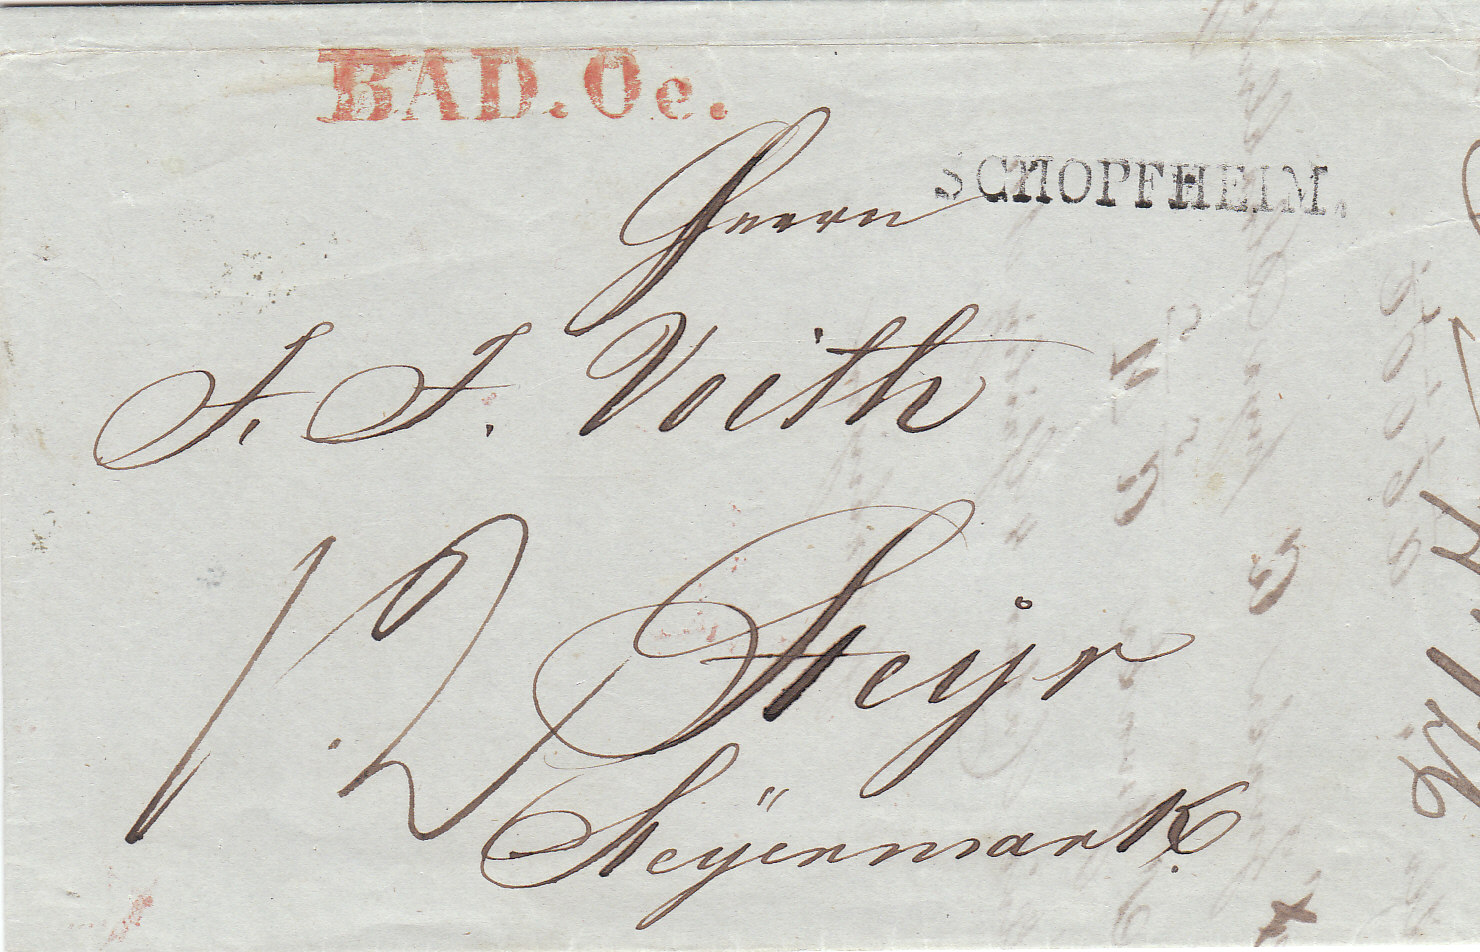 BAD. Oe.
SCHOPFHEIM.
Herrn
F. F. Voith
12
Steyr
Steÿermark.